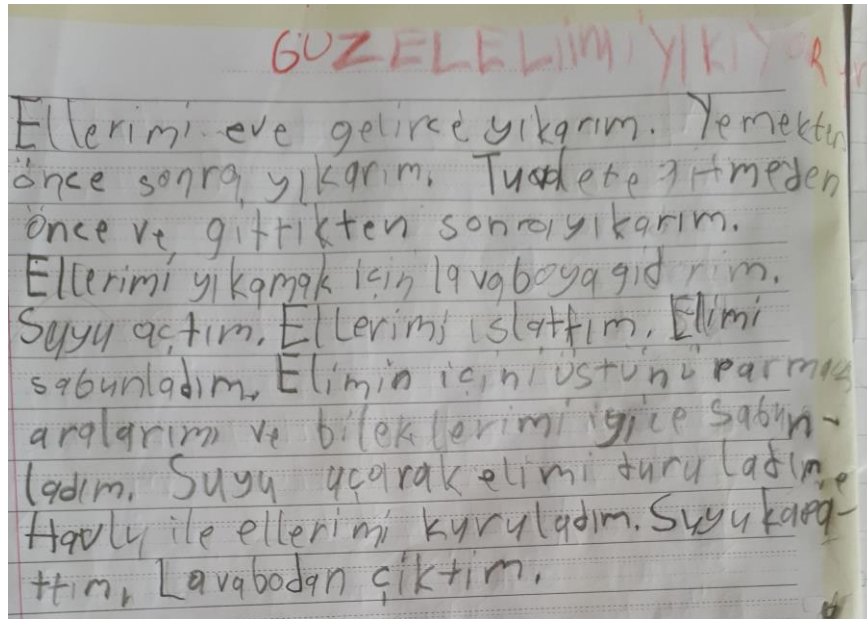 GÜZEL ELİMİ YIKIYOR
Ellerimi eve gelince yıkarım. Yemekten
önce sonra yıkarım. Tuvalete gitmeden
önce ve gittikten sonra yıkarım.
Ellerimi yıkamak için lavaboya gidrim.
Suyu açtım. Ellerimi ıslattım. Elimi
sabunladım. Elimin içini üstünü parmak
aralarımı ve bileklerimi iyice sabun-
ladım. Suyu açarak elimi duruladım.
Havlu ile ellerimi kuruladım. Suyu kapa-
ttım. Lavabodan çıktım.